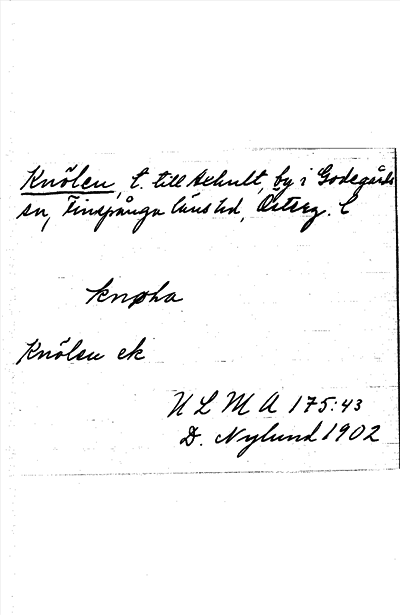 Knölen, t. till Axhult, by i Godegårds
sn, Finspånga läns hd, Österg. l
knøha
Knölen ek
ULMA 175:43
D. Nylund 1902